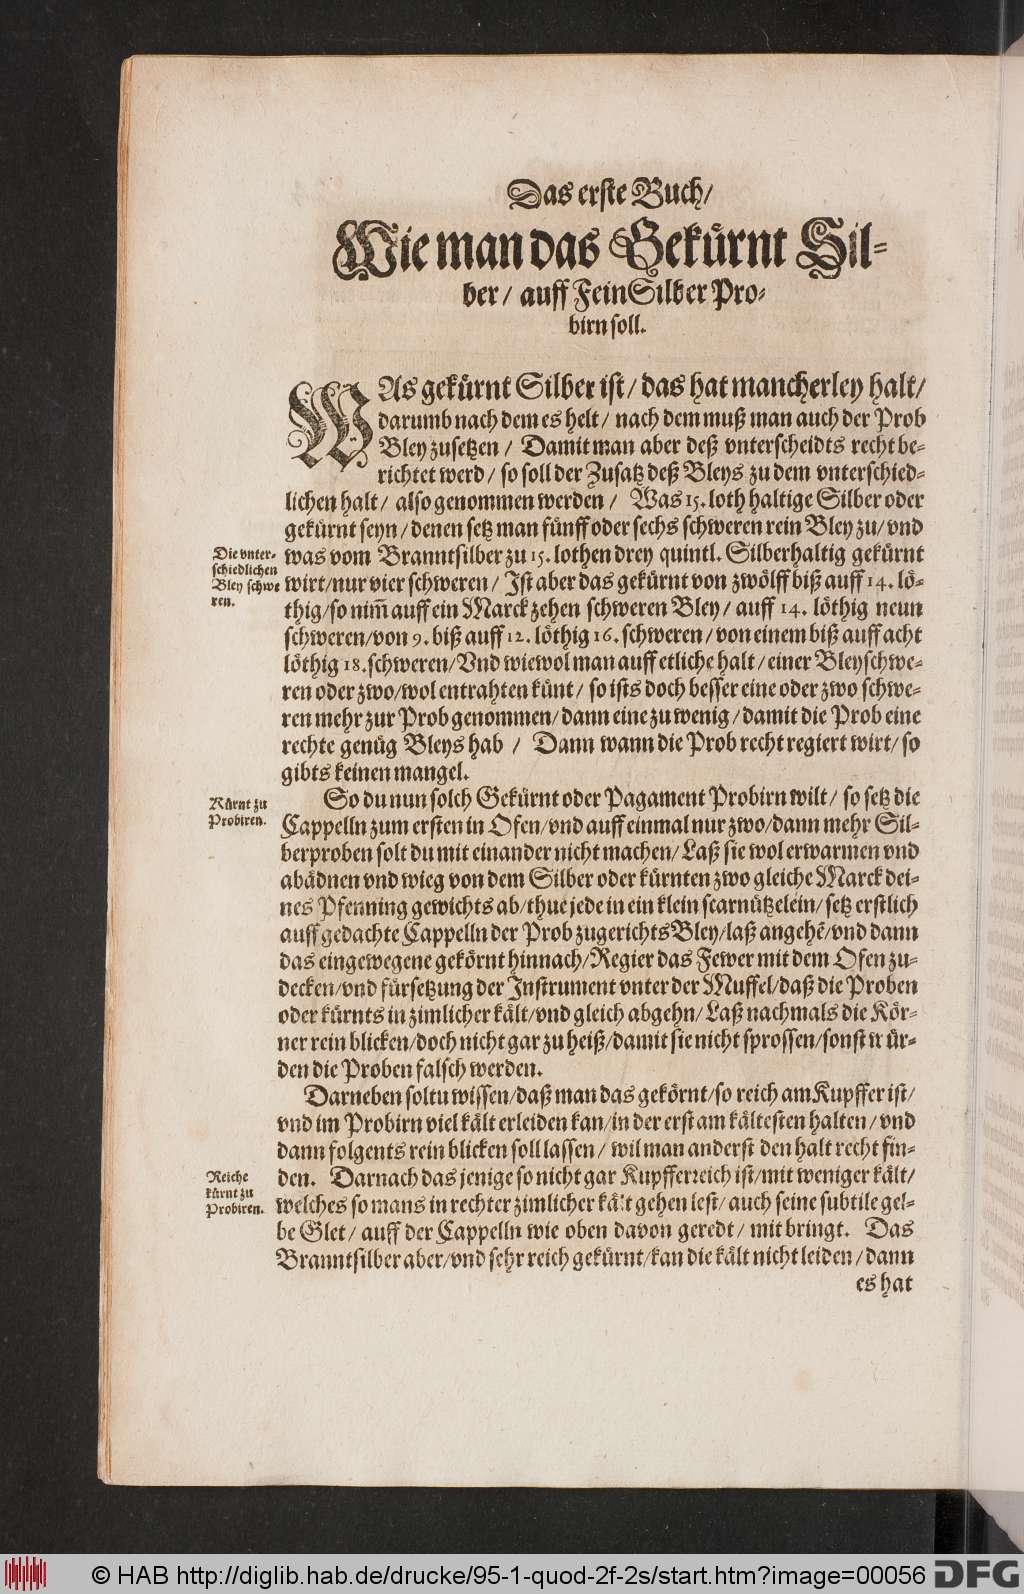 Das erste Buch/
Wie man das Gekürnt Sil-
ber/ auff Fein Silber Pro-
birn soll.
WAs gekürnt Silber ist/ das hat mancherley halt/
darumb nach dem es helt/ nach dem muß man auch der Prob
Bley zusetzen/ Damit man aber deß vnterscheidts recht be-
richtet werd/ so soll der Zusatz deß Bleys zu dem vnterschied-
lichen halt/ also genommen werden/ Was 15. loth haltige Silber oder
gekürnt seyn/ denen setz man fünff oder sechs schweren rein Bley zu/ vnd
Die vnter-
schiedlichen
Bley schwe
ren.
was vom Branntsilber zu 15. lothen drey quintl. Silberhaltig gekürnt
wirt/ nur vier schweren/ Ist aber das gekürnt von zwölff biß auff 14. lö-
thig/ so nim̄ auff ein Marck zehen schweren Bley/ auff 14. löthig neun
schweren/ von 9. biß auff 12. löthig 16. schweren/ von einem biß auff acht
löthig 18. schweren/ Vnd wiewol man auff etliche halt/ einer Bleyschwe-
ren oder zwo/ wol entrahten künt/ so ists doch besser eine oder zwo schwe-
ren mehr zur Prob genommen/ dann eine zu wenig/ damit die Prob eine
rechte genüg Bleys hab/ Dann wann die Prob recht regiert wirt/ so
gibts keinen mangel.
Kürnt zu
Probiren.
So du nun solch Gekürnt oder Pagament Probirn wilt/ so setz die
Cappelln zum ersten in Ofen/ vnd auff einmal nur zwo/ dann mehr Sil-
berproben solt du mit einander nicht machen/ Laß sie wol erwarmen vnd
abädnen vnd wieg von dem Silber oder kürnten zwo gleiche Marck dei-
nes Pfenning gewichts ab/ thue jede in ein klein scarnützelein/ setz erstlich
auff gedachte Cappelln der Prob zugerichts Bley/ laß angehē/ vnd dann
das eingewegene gekörnt hinnach/ Regier das Fewer mit dem Ofen zu-
decken/ vnd fürsetzung der Instrument vnter der Muffel/ daß die Proben
oder kürnts in zimlicher kält/ vnd gleich abgehn/ Laß nachmals die Kör-
ner rein blicken/ doch nicht gar zu heiß/ damit sie nicht sprossen/ sonst wür-
den die Proben falsch werden.
Darneben soltu wissen/ daß man das gekörnt/ so reich am Kupffer ist/
vnd im Probirn viel kält erleiden kan/ in der erst am kältesten halten/ vnd
dann folgents rein blicken soll lassen/ wil man anderst den halt recht fin-
Reiche
kürnt zu
Probiren.
den. Darnach das jenige so nicht gar Kupfferreich ist/ mit weniger kält/
welches so mans in rechter zimlicher kält gehen lest/ auch seine subtile gel-
be Glet/ auff der Cappelln wie oben davon geredt/ mit bringt. Das
Branntsilber aber/ vnd sehr reich gekürnt/ kan die kält nicht leiden/ dann
es hat
© HAB http://diglib.hab.de/drucke/95-1-quod-2f-2s/start.htm?image=00056
DFG